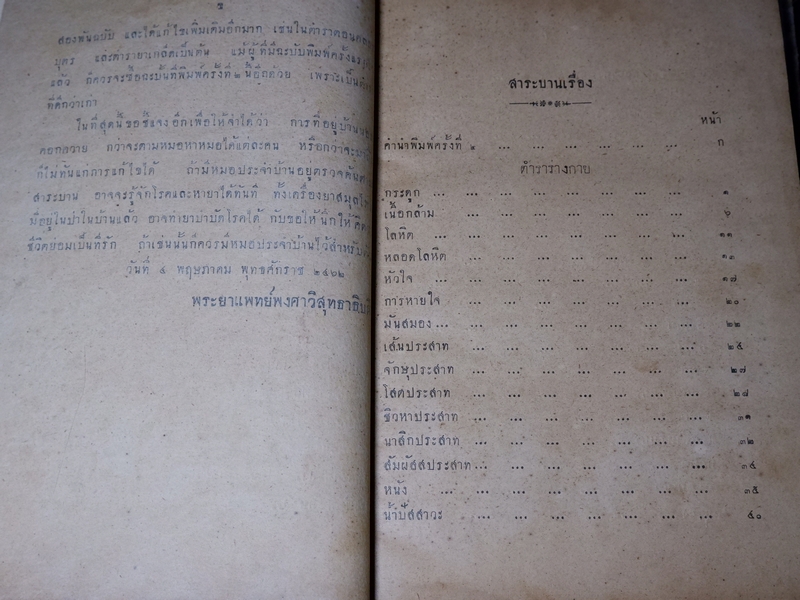 ข
สองพันฉบับ และได้แก้ไขเพิ่มเติมอีกมาก เช่นในตำรา
บุตร และตำรายาเกล็ดเป็นต้น แม้ผู้ที่มีฉะบับพิมพ์ครั้งแรก
แล้ว ก็ควรจะซื้อฉะบับที่พิมพ์ครั้งที่ ๒ นี้อีกด้วย เพราะเป็น
ที่ดีกว่าเก่า
ในที่สุดนี้ขอชี้แจงอีกเพื่อให้จำได้ว่า การที่อยู่บ้าน
ดอกดวย กว่าจะตามหมอหาหมอได้แต่ละคน หรือกว่าจะ
ก็ไม่ทันแก่การแก้ไขได้ ถ้ามีหมอประจำบ้านอยู่ตรวจค้นดู
สาระบาน อาจจะรู้จักโรคและหายาได้ทันที ทั้งเครื่องยาสมุนไพร
มีอยู่ในป่าในบ้านแล้ว อาจทำยาบำบัดโรคได้ กับขอให้นึกให้
ชีวิตย่อมเป็นที่รัก ถ้าเช่นนั้นก็ควรมีหมอประจำบ้านไว้สำหรับ
วันที่ ๕ พฤษภาคม พุทธศักราช ๒๔๖๒
พระยาแพทย์พงศาวิสุทธาธิบดี
สาระบานเรื่อง
หน้า
คำนำพิมพ์ครั้งที่ ๒ ... ... ... ... ... ก
ตำราร่างกาย
กระดูก ... ... ... ... ... ... ... ๑
เนื้อกล้าม ... ... ... ... ... ... ... ๖
โลหิต ... ... ... ... ... ... ... ๑๑
หลอดโลหิต ... ... ... ... ... ... ๑๓
หัวใจ ... ... ... ... ... ... ... ๑๗
การหายใจ ... ... ... ... ... ... ๒๐
มันสมอง ... ... ... ... ... ... ... ๒๒
เส้นประสาท ... ... ... ... ... ... ๒๕
จักษุประสาท ... ... ... ... ... ... ๒๗
โสตประสาท ... ... ... ... ... ... ๒๗
ชิวหาประสาท ... ... ... ... ... ... ๓๑
นาสิกประสาท ... ... ... ... ... ... ๓๒
สัมผัสสประสาท ... ... ... ... ... ... ๓๔
หนัง ... ... ... ... ... ... ... ๓๕
น้ำปัสสาวะ ... ... ... ... ... ... ๔๐